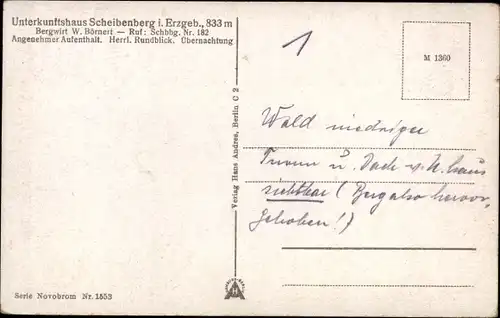 Unterkunftshaus Scheibenberg i. Erzgeb., 833 m
Bergwirt W. Börnert — Ruf: Schbbg. Nr. 182
Angenehmer Aufenthalt. Herrl. Rundblick. Übernachtung
1
M 1360
Wald niedriger
Turm u. Dach v. U.haus
sichtbar (Berg also hervor-
gehoben!)
Verlag Hans Andres, Berlin C 2
Serie Novobrom Nr. 1553